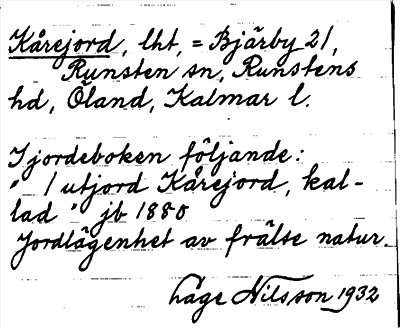 Kårejord, lht, = Bjärby 21,
Runsten sn, Runstens
hd, Öland, Kalmar l.
I jordeboken följande:
" 1 utjord Kårejord, kal-
lad " jb 1880
Jordlägenhet av frälse natur.
Åge Nilsson 1932